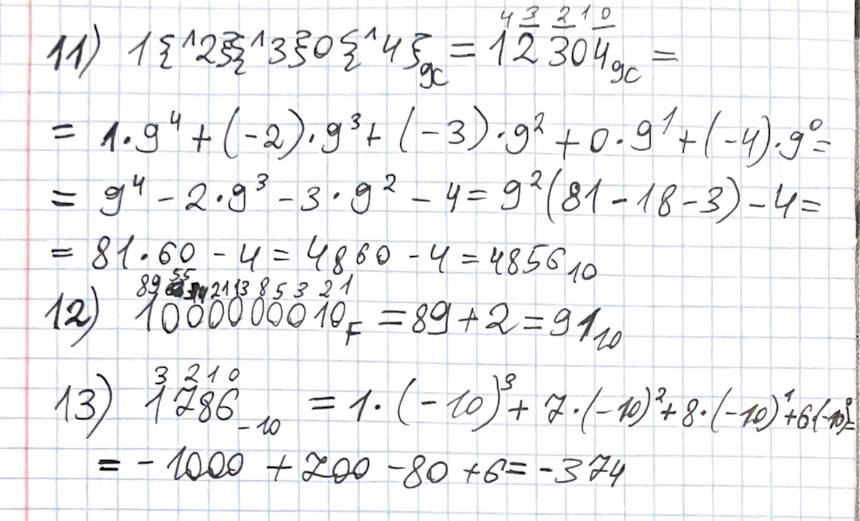 4 3 2 1 0
11) 1{^12}{^13}0{^14}9C = 123049C =
= 1·9^4 + (-2)·9^3 + (-3)·9^2 + 0·9^1 + (-4)·9^0 =
= 9^4 - 2·9^3 - 3·9^2 - 4 = 9^2(81 - 18 - 3) - 4 =
= 81·60 - 4 = 4860 - 4 = 4856 10
89 55 34 21 13 8 5 3 2 1
12) 1000000010 F = 89 + 2 = 91 10
3 2 1 0
13) 1786 -10 = 1·(-10)^3 + 7·(-10)^2 + 8·(-10)^1 + 6(-10)^0 =
= -1000 + 700 - 80 + 6 = -374